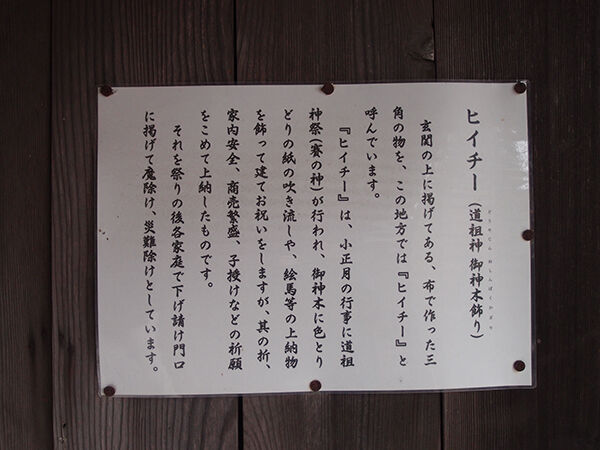 ヒイチー(道祖神 御神木飾り)
玄関の上に掲げてある、布で作った三
角の物を、この地方では『ヒイチー』と
呼んでいます。
『ヒイチー』は、小正月の行事に道祖
神祭(賽の神)が行われ、御神木に色とり
どりの紙の吹き流しや、絵馬等の上納物
を飾って建てお祝いをしますが、其の折、
家内安全、商売繁盛、子授けなどの祈願
をこめて上納したものです。
それを祭りの後各家庭で下げ請け門口
に掲げて魔除け、災難除けとしています。